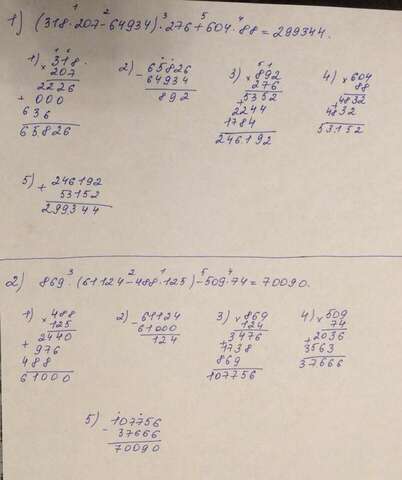 1) (318·207-64934)·276+604·88=299344.
1) × 318
207
2226
+ 000
636
65826
2) - 65826
64934
892
3) × 892
276
+ 5352
6244
1784
246192
4) × 604
88
+ 4832
4832
53152
5) + 246192
53152
299344
2) 869·(61124-488·125)-509·74=70090.
1) × 488
125
2440
+ 976
488
61000
2) - 61124
61000
124
3) × 869
124
+ 3476
1738
869
107756
4) × 509
74
+ 2036
3563
37666
5) - 107756
37666
70090